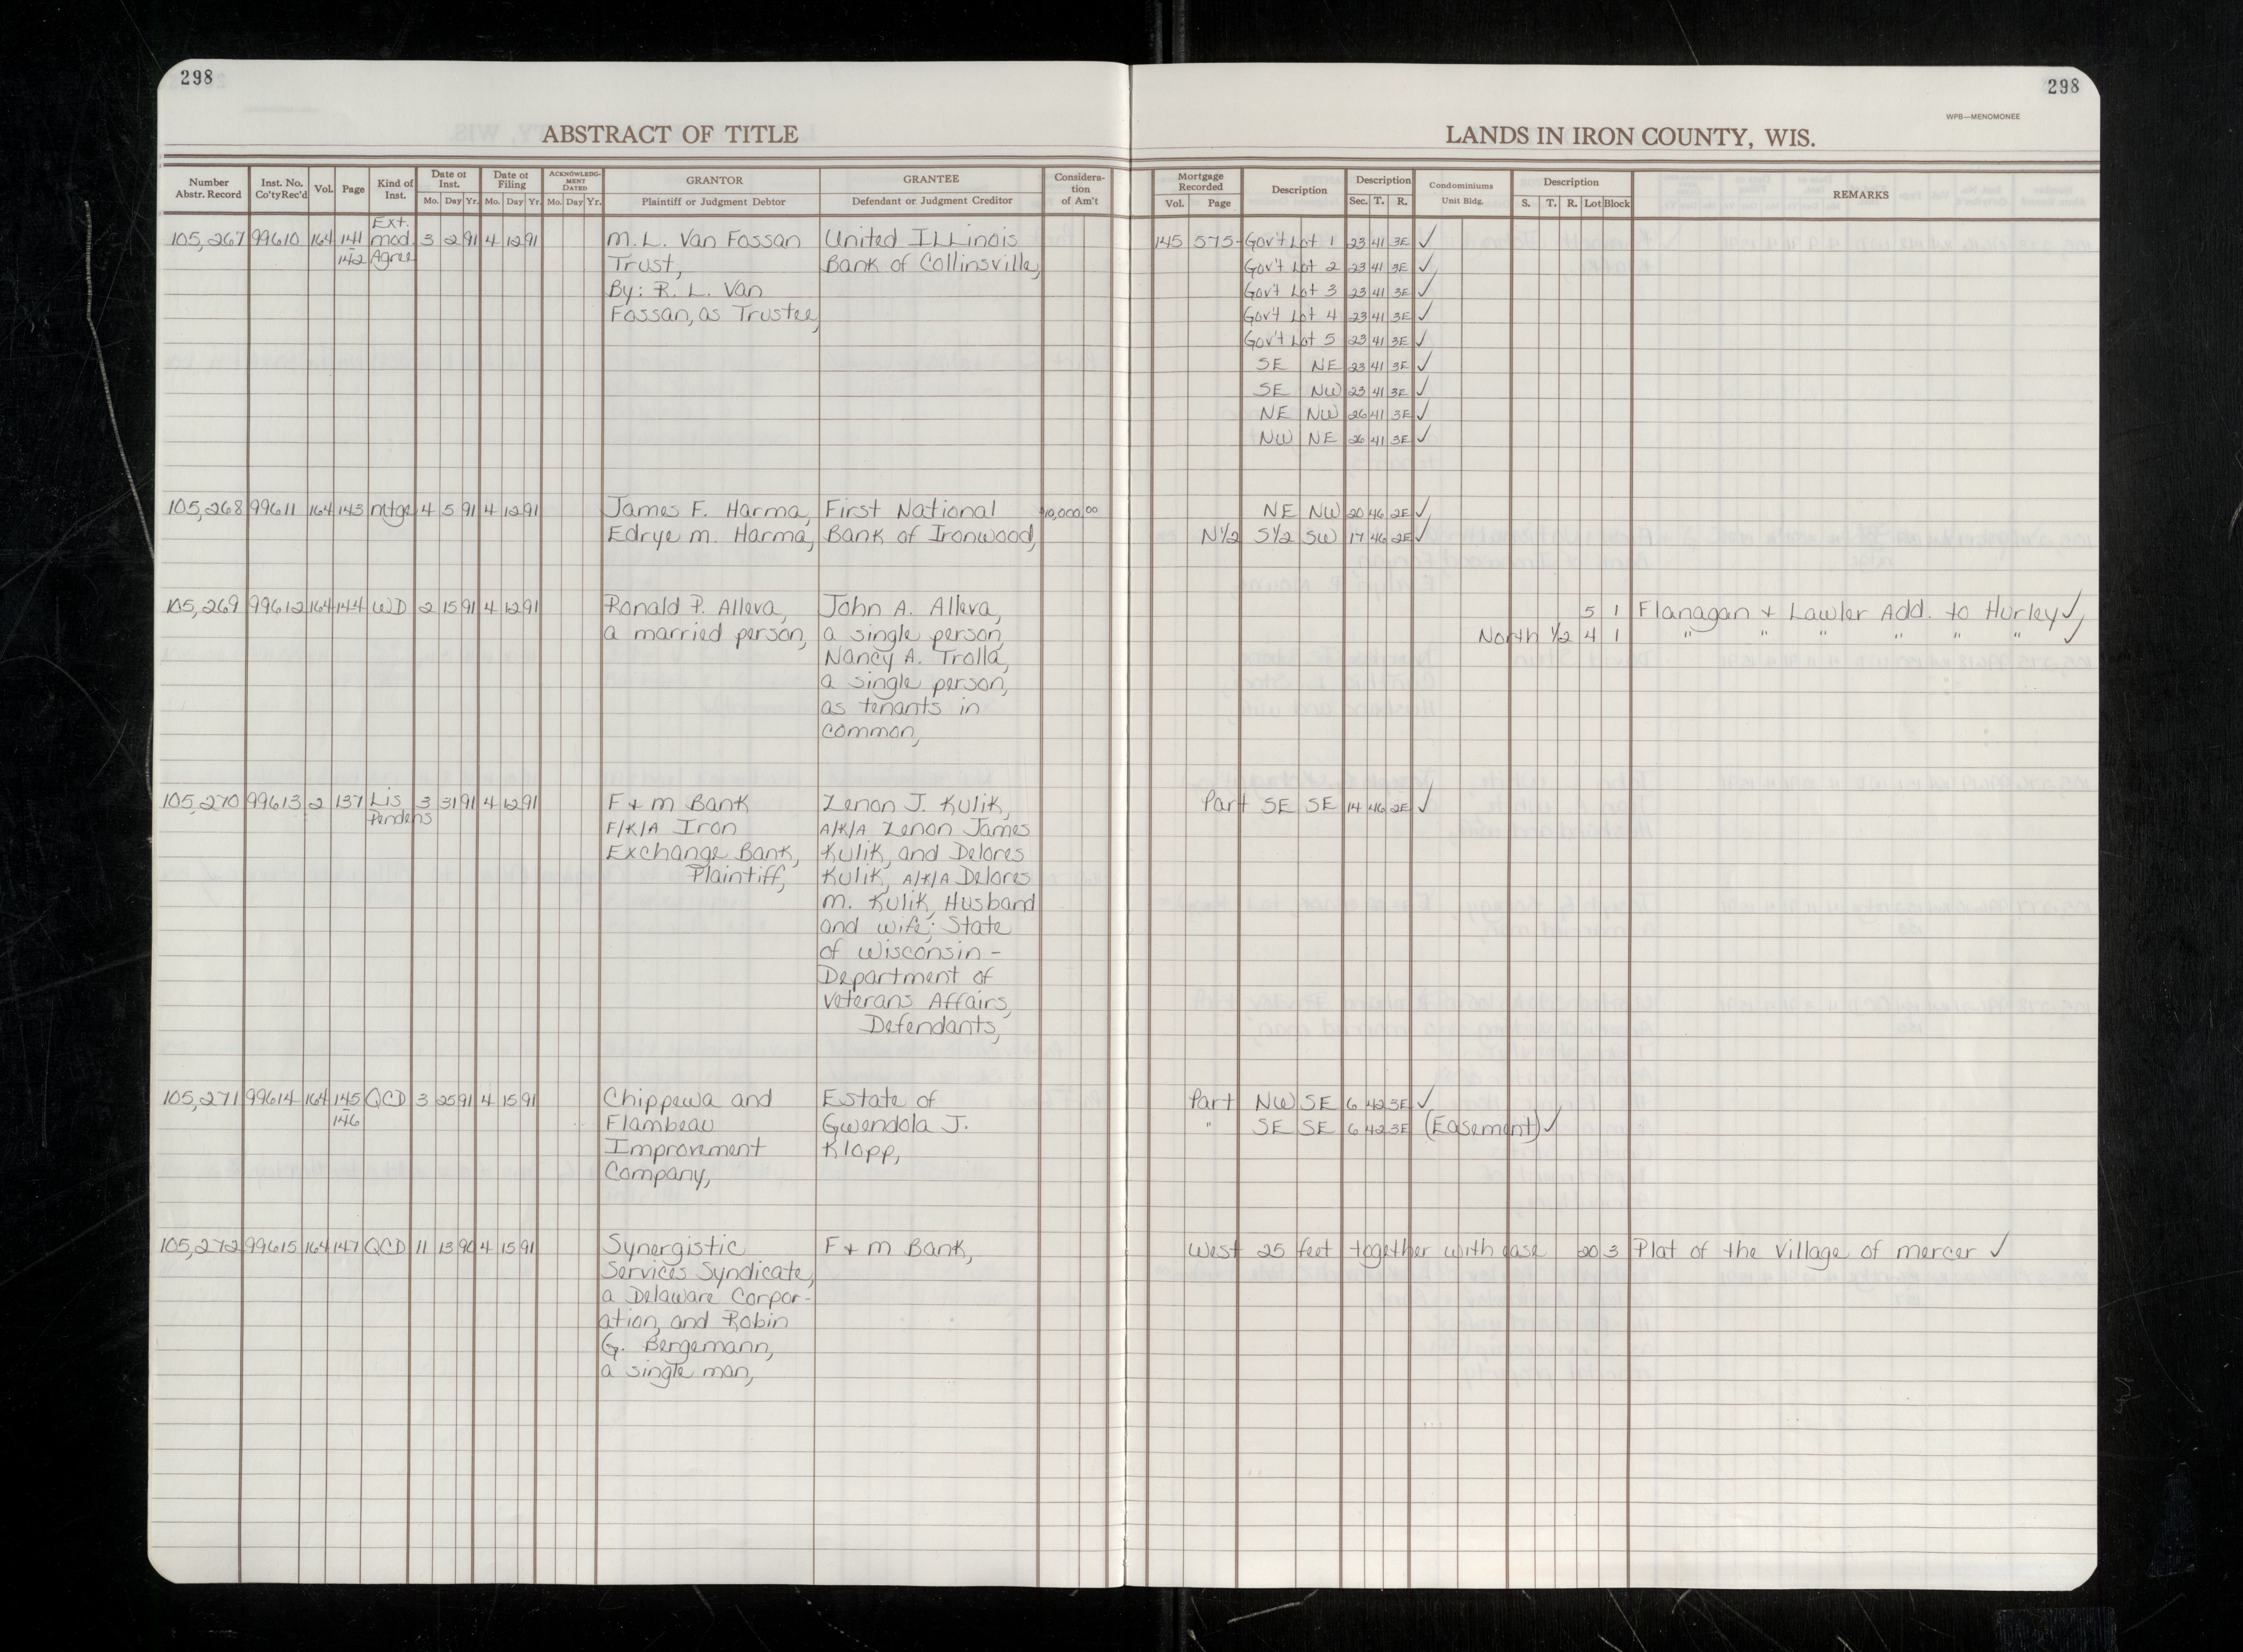 298
298
WPB—MENOMONEE
ABSTRACT OF TITLE
LANDS IN IRON COUNTY, WIS.
Number Abstr. Record Inst. No. Co'ty Rec'd Vol. Page Kind of Inst. Date of Inst. Mo. Day Yr. Date of Filing Mo. Day Yr. ACKNOWLEDGMENT DATED Mo. Day Yr. GRANTOR Plaintiff or Judgment Debtor GRANTEE Defendant or Judgment Creditor Consideration of Am't Mortgage Recorded Vol. Page Description Description Sec. T. R. Condominiums Unit Bldg. Description S. T. R. Lot Block REMARKS
Ext.
105,267 99610 164 141 mod. 3 2 91 4 12 91 M. L. Van Fossan United ILLinois 145 575 Gov't Lot 1 23 41 3E ✓
142 Agree Trust, Bank of Collinsville, Gov't Lot 2 23 41 3E ✓
By: R. L. Van Gov't Lot 3 23 41 3E ✓
Fossan, as Trustee, Gov't Lot 4 23 41 3E ✓
Gov't Lot 5 23 41 3E ✓
SE NE 23 41 3E ✓
SE NW 23 41 3E ✓
NE NW 26 41 3E ✓
NW NE 26 41 3E ✓
105,268 99611 164 143 mtge 4 5 91 4 12 91 James F. Harma, First National $10,000.00 NE NW 20 46 2E ✓
Edrye m. Harma, Bank of Ironwood, N1/2 S1/2 SW 17 46 2E ✓
105,269 99612 164 144 WD 2 15 91 4 12 91 Ronald P. Alleva, John A. Alleva, 5 1 Flanagan + Lawler Add. to Hurley ✓
a married person, a single person, North 1/2 4 1 " " " " " " ✓
Nancy A. Trolla,
a single person,
as tenants in
common,
105,270 99613 2 137 Lis 3 31 91 4 12 91 F + m Bank Zenon J. Kulik, Part SE SE 14 46 2E ✓
Pendens F/K/A Iron A/K/A Zenon James
Exchange Bank, Kulik, and Delores
Plaintiff, Kulik, A/K/A Delores
m. Kulik, Husband
and wife; State
of Wisconsin -
Department of
Veterans Affairs,
Defendants,
105,271 99614 164 145 QCD 3 25 91 4 15 91 Chippewa and Estate of Part NW SE 6 42 3E ✓
146 Flambeau Gwendola J. " SE SE 6 42 3E (Easement) ✓
Improvement Klopp,
Company,
105,272 99615 164 147 QCD 11 13 90 4 15 91 Synergistic F + m Bank, West 25 feet together with ease 20 3 Plat of the Village of mercer ✓
Services Syndicate,
a Delaware Corpor-
ation, and Robin
G. Bergemann,
a single man,